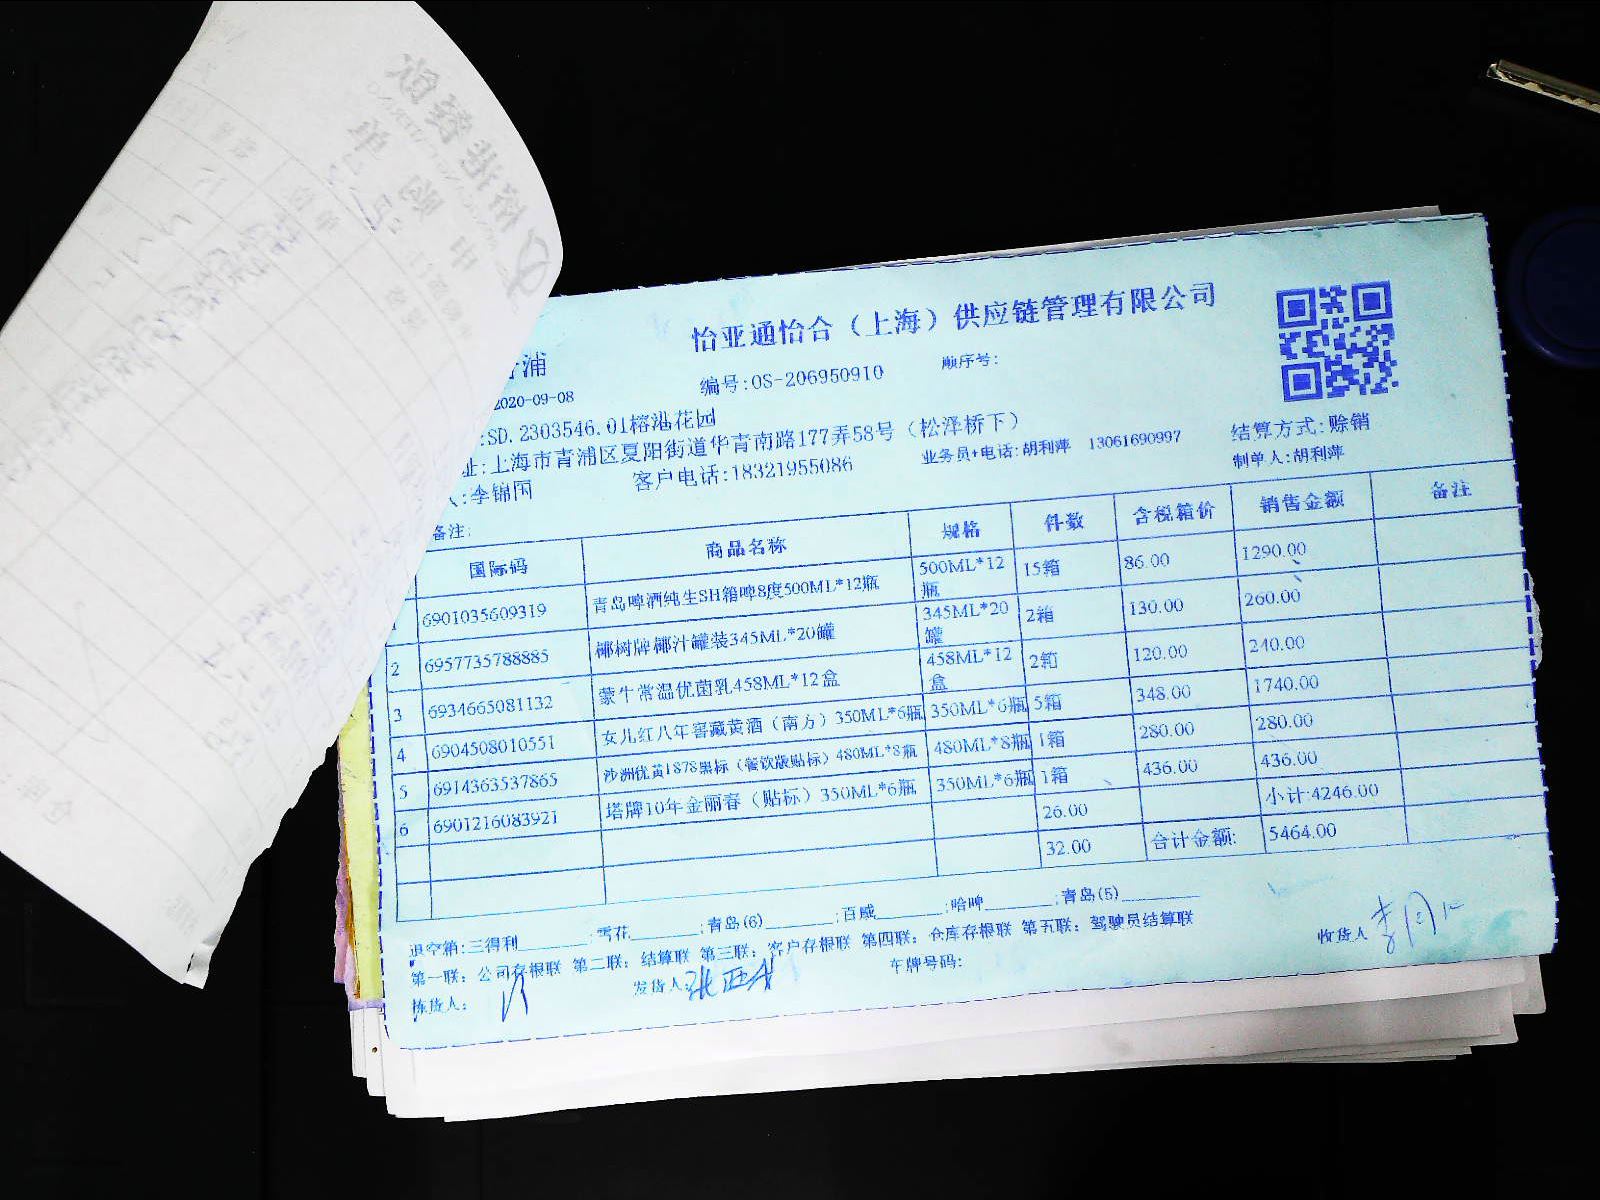 怡亚通怡合（上海）供应链管理有限公司
浦
2020-09-08 编号:OS-206950910 顺序号:
:SD.2303546.01榕港花园
址:上海市青浦区夏阳街道华青南路177弄58号（松泽桥下） 结算方式:赊销
人:李锦国 客户电话:18321955086 业务员+电话:胡利萍 13061690997 制单人:胡利萍
备注:
国际码 商品名称 规格 件数 含税箱价 销售金额 备注
1 6901035609319 青岛啤酒纯生SH箱啤8度500ML*12瓶 500ML*12瓶 15箱 86.00 1290.00
2 6957735788885 椰树牌椰汁罐装345ML*20罐 345ML*20罐 2箱 130.00 260.00
3 6934665081132 蒙牛常温优菌乳458ML*12盒 458ML*12盒 2箱 120.00 240.00
4 6904508010551 女儿红八年窖藏黄酒（南方）350ML*6瓶 350ML*6瓶 5箱 348.00 1740.00
5 6914363537865 沙洲优黄1878黑标（餐饮版贴标）480ML*8瓶 480ML*8瓶 1箱 280.00 280.00
6 6901216083921 塔牌10年金丽春（贴标）350ML*6瓶 350ML*6瓶 1箱 436.00 436.00
26.00 小计:4246.00
32.00 合计金额: 5464.00
退空箱:三得利_______;雪花_______;青岛(6)_______;百威_______;哈啤_______;青岛(5)_______
第一联：公司存根联 第二联：结算联 第三联：客户存根联 第四联：仓库存根联 第五联：驾驶员结算联
拣货人： 发货人: 车牌号码: 收货人